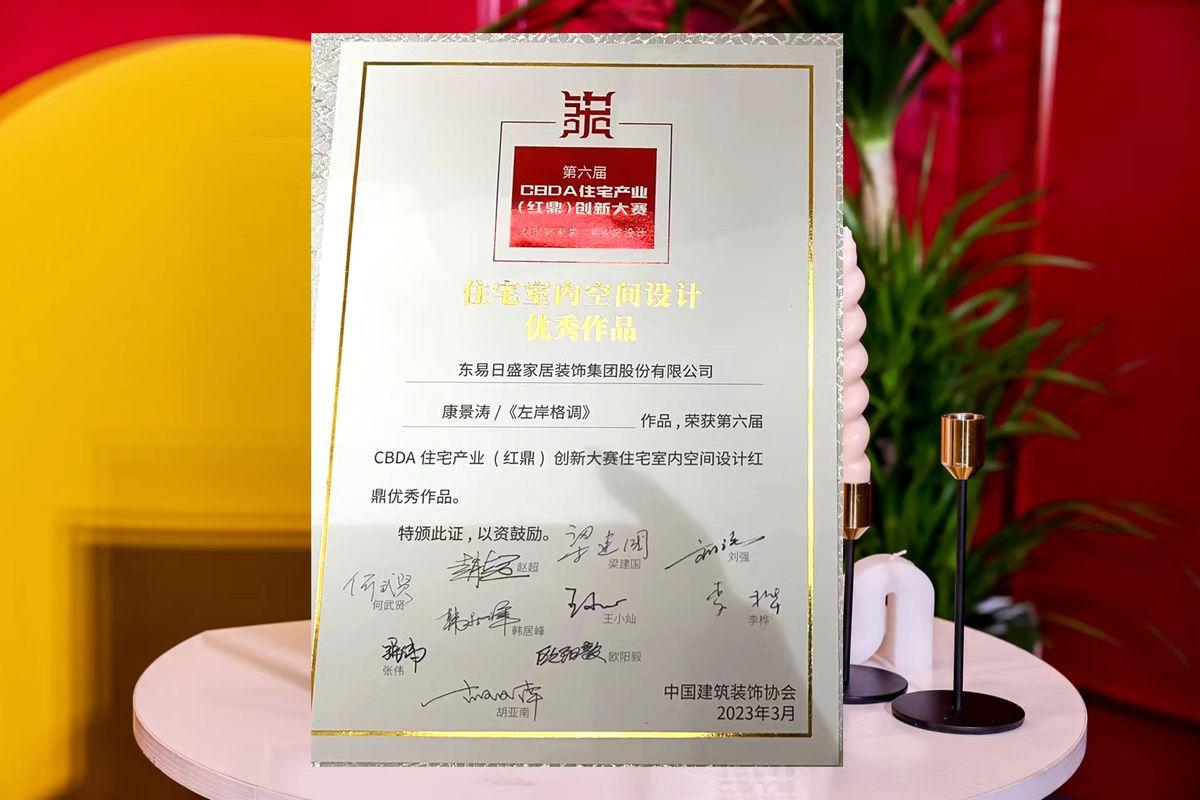 第六届
CBDA住宅产业
（红鼎）创新大赛
住宅室内空间设计
优秀作品
东易日盛家居装饰集团股份有限公司
康景涛 /《左岸格调》 作品，荣获第六届
CBDA 住宅产业（红鼎）创新大赛住宅室内空间设计红
鼎优秀作品。
特颁此证，以资鼓励。
赵超 梁建国 刘强
何武贤
韩居峰 王小灿 李桦
张伟 欧阳毅
胡亚南
中国建筑装饰协会
2023年3月